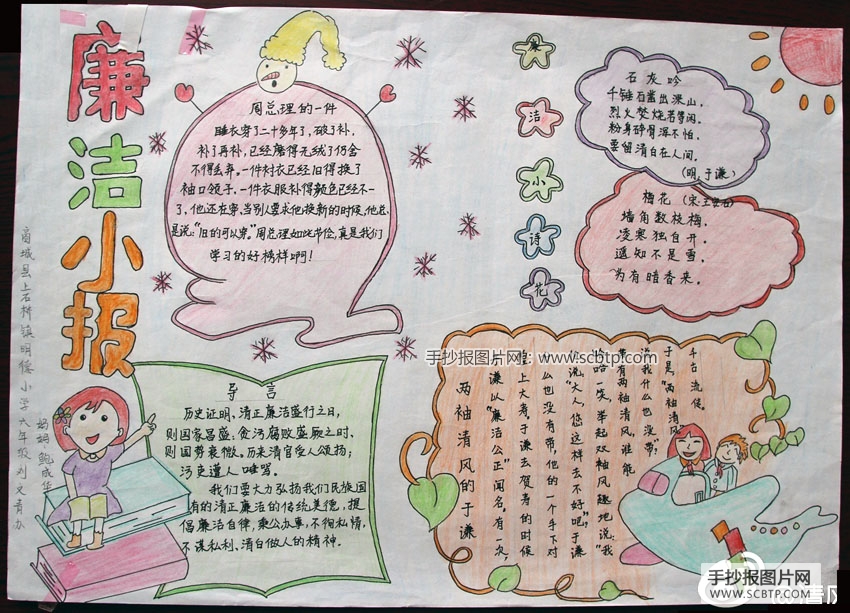 廉洁小报
商城县上石桥镇明德小学六年级刘文青办
周总理的一件
睡衣穿了二十多年了,破了补,
补了再补,已经磨得无绒了仍舍
不得丢弃。一件衬衣已经旧得换了
袖口领子。一件衣服补得颜色已经不一
了,他还在穿,当别人要求他换新的时候,他总
是说:“旧的可以穿。”周总理如此节俭,真是我们
学习的好榜样啊!
廉
洁
小
诗
花
石灰吟
千锤石凿出深山,
烈火焚烧若等闲。
粉身碎骨浑不怕,
要留清白在人间。
(明,于谦)
梅花(宋王安石)
墙角数枝梅,
凌寒独自开。
遥知不是雪,
为有暗香来。
导言
历史证明,清正廉洁盛行之日,
则国容昌盛;贪污腐败盛厥之时、
则国势衰微。历来清官受人颂扬;
污吏遭人唾骂。
我们要大力弘扬我们民族固
有的清正廉洁的传统美德,提
倡廉洁自律,秉公办事,不徇私情,
不谋私利、清白做人的精神。
两袖清风的于谦
谦以“廉洁公正”闻名。有一次,
上大寿。于谦去贺寿的时候
么也没有带,他的一个手下对
说:“大人,您这样去不好吧。”于谦
哈一笑,举起双袖风趣地说:“我
带有两袖清风,谁能
说我什么也没带?”
于是,“两袖清风”
千古流传。
手抄报图片网:www.scbtp.com
手抄报图片网
WWW.SCBTP.COM